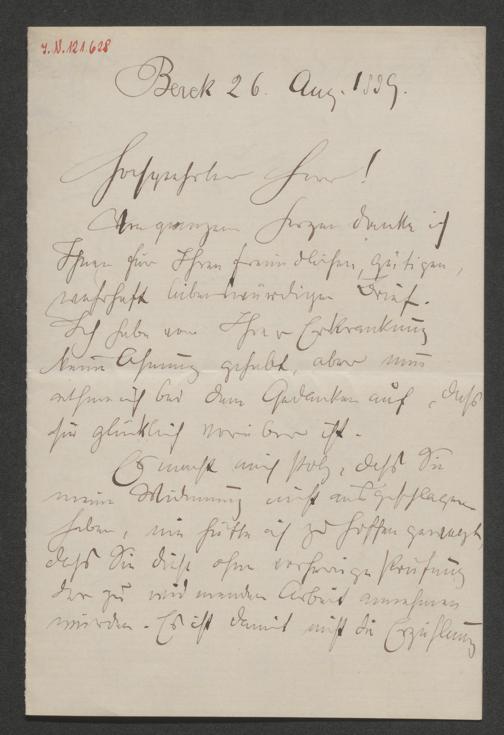 J.N.121.628
Berck 26. Aug. 1889.
Hochgeehrter Herr!
Von ganzem Herzen danke ich
Ihnen für Ihren freundlichen, gütigen,
wahrhaft liebenswürdigen Brief.
Ich habe von Ihrer Erkrankung
keine Ahnung gehabt, aber nun
athme ich bei dem Gedanken auf, daß
sie glücklich vorüber ist.
Es macht mich stolz, daß Sie
meine Widmung nicht ausgeschlagen
haben, nie hätte ich zu hoffen gewagt,
daß Sie diese ohne vorherige Prüfung
der zu widmenden Arbeit annehmen
würden. Es ist damit nicht die Erzählung